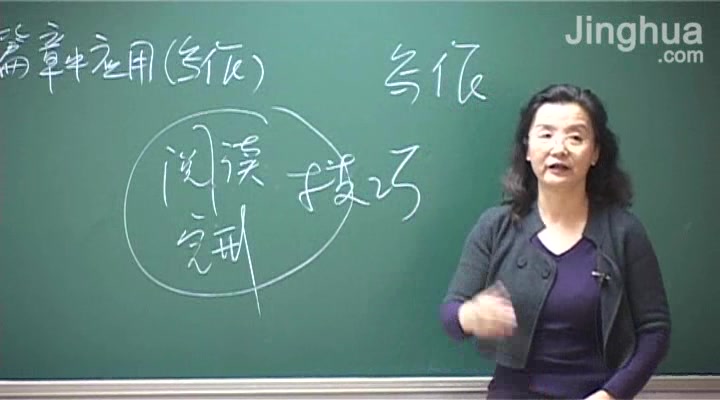 Jinghua
.com
篇章中应用(写作)
写作
阅读 技巧
完形